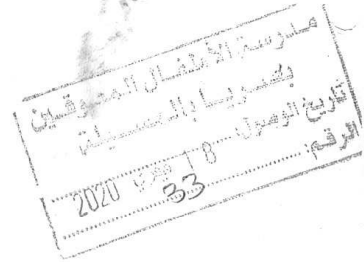 مدرسة الأطفال المعوقين
بصريا بالمسيلة
تاريخ الوصول: 18 فيفري 2020
الرقم: 33